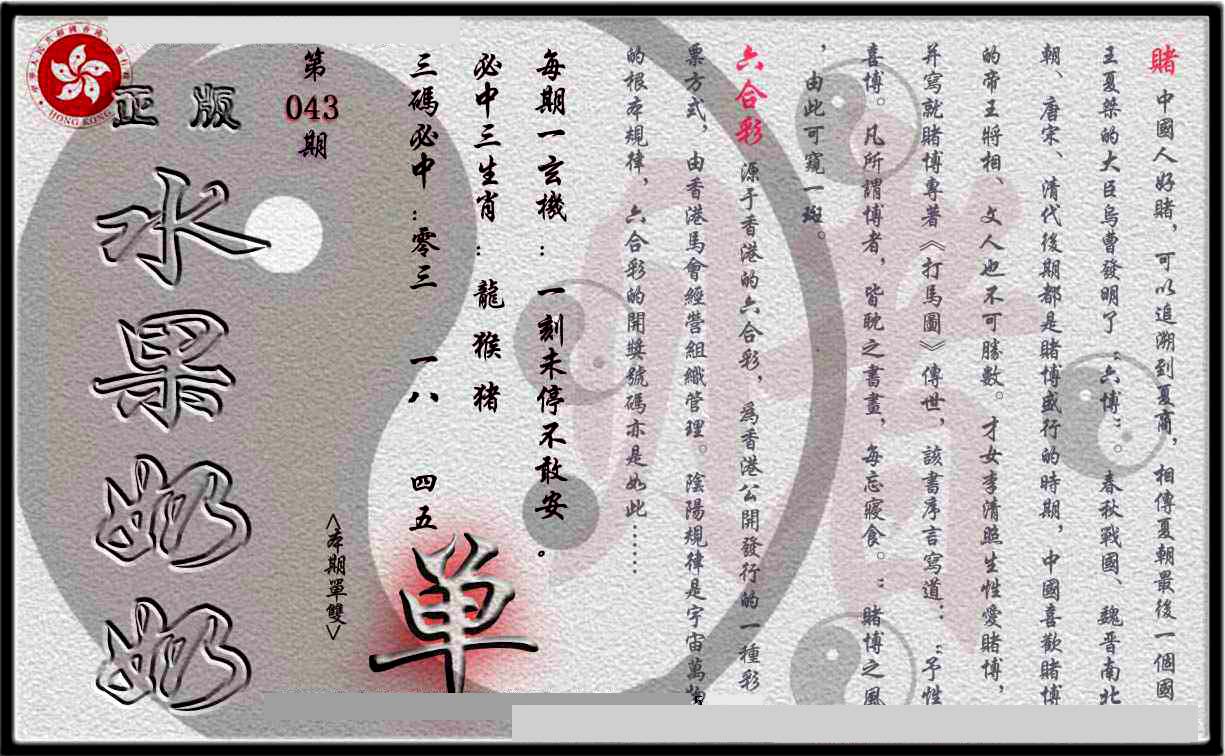 賭 中國人好賭，可以追溯到夏商，相傳夏朝最後一個國
王夏桀的大臣烏曹發明了“六博”。春秋戰國、魏晋南北
朝、唐宋、清代後期都是賭博盛行的時期，中國喜歡賭博
的帝王將相、文人也不可勝數。才女李清照生性愛賭博，
并寫就賭博專著《打馬圖》傳世，該書序言寫道：“予性
喜博。凡所謂博者，皆耽之書畫，每忘寢食。”賭博之風
，由此可窺一斑。
六合彩 源于香港的六合彩，爲香港公開發行的一種彩
票方式，由香港馬會經營組織管理。陰陽規律是宇宙萬物
的根本規律，六合彩的開獎號碼亦是如此……
每期一玄機：一刻未停不敢安。
必中三生肖：龍 猴 猪
三碼必中：零三 一八 四五
<本期單雙>
单
第
043
期
正版
水果奶奶
HONG KONG